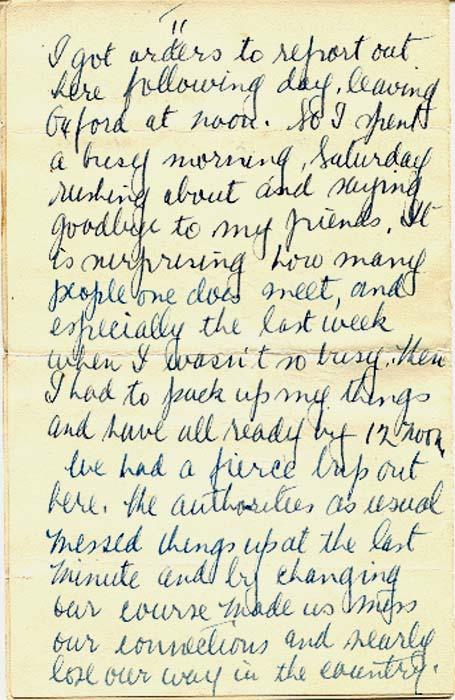 11
I got orders to report out
here following day, leaving
Oxford at noon. So I spent
a busy morning, Saturday
rushing about and saying
goodbye to my friends. It
is surprising how many
people one does meet, and
especially the last week
when I wasn't so busy. Then
I had to pack up my things
and have all ready by 12 noon.
We had a fierce trip out
here. The authorities as usual
messed things up at the last
minute and by changing
our course made us miss
our connections and nearly
lose our way in the country.